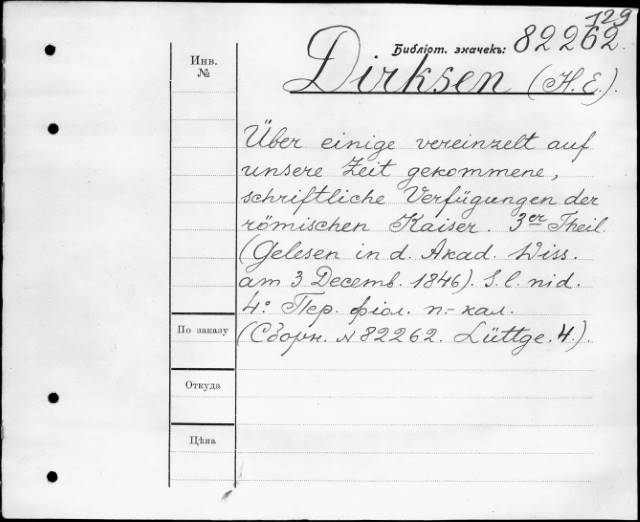 129
Библіот. значекъ: 82262.
Инв.
№
Dirksen (H. E.).
Über einige vereinzelt auf
unsere Zeit gekommene,
schriftliche Verfügungen der
römischen Kaiser. 3er Theil.
(Gelesen in d. Akad. Wiss.
am 3 Decemb. 1846). S. l. nid.
4º Пер. фіол. п.-кал.
(Сборн. №82262. Lüttge. 4.).
По заказу
Откуда
Цѣна